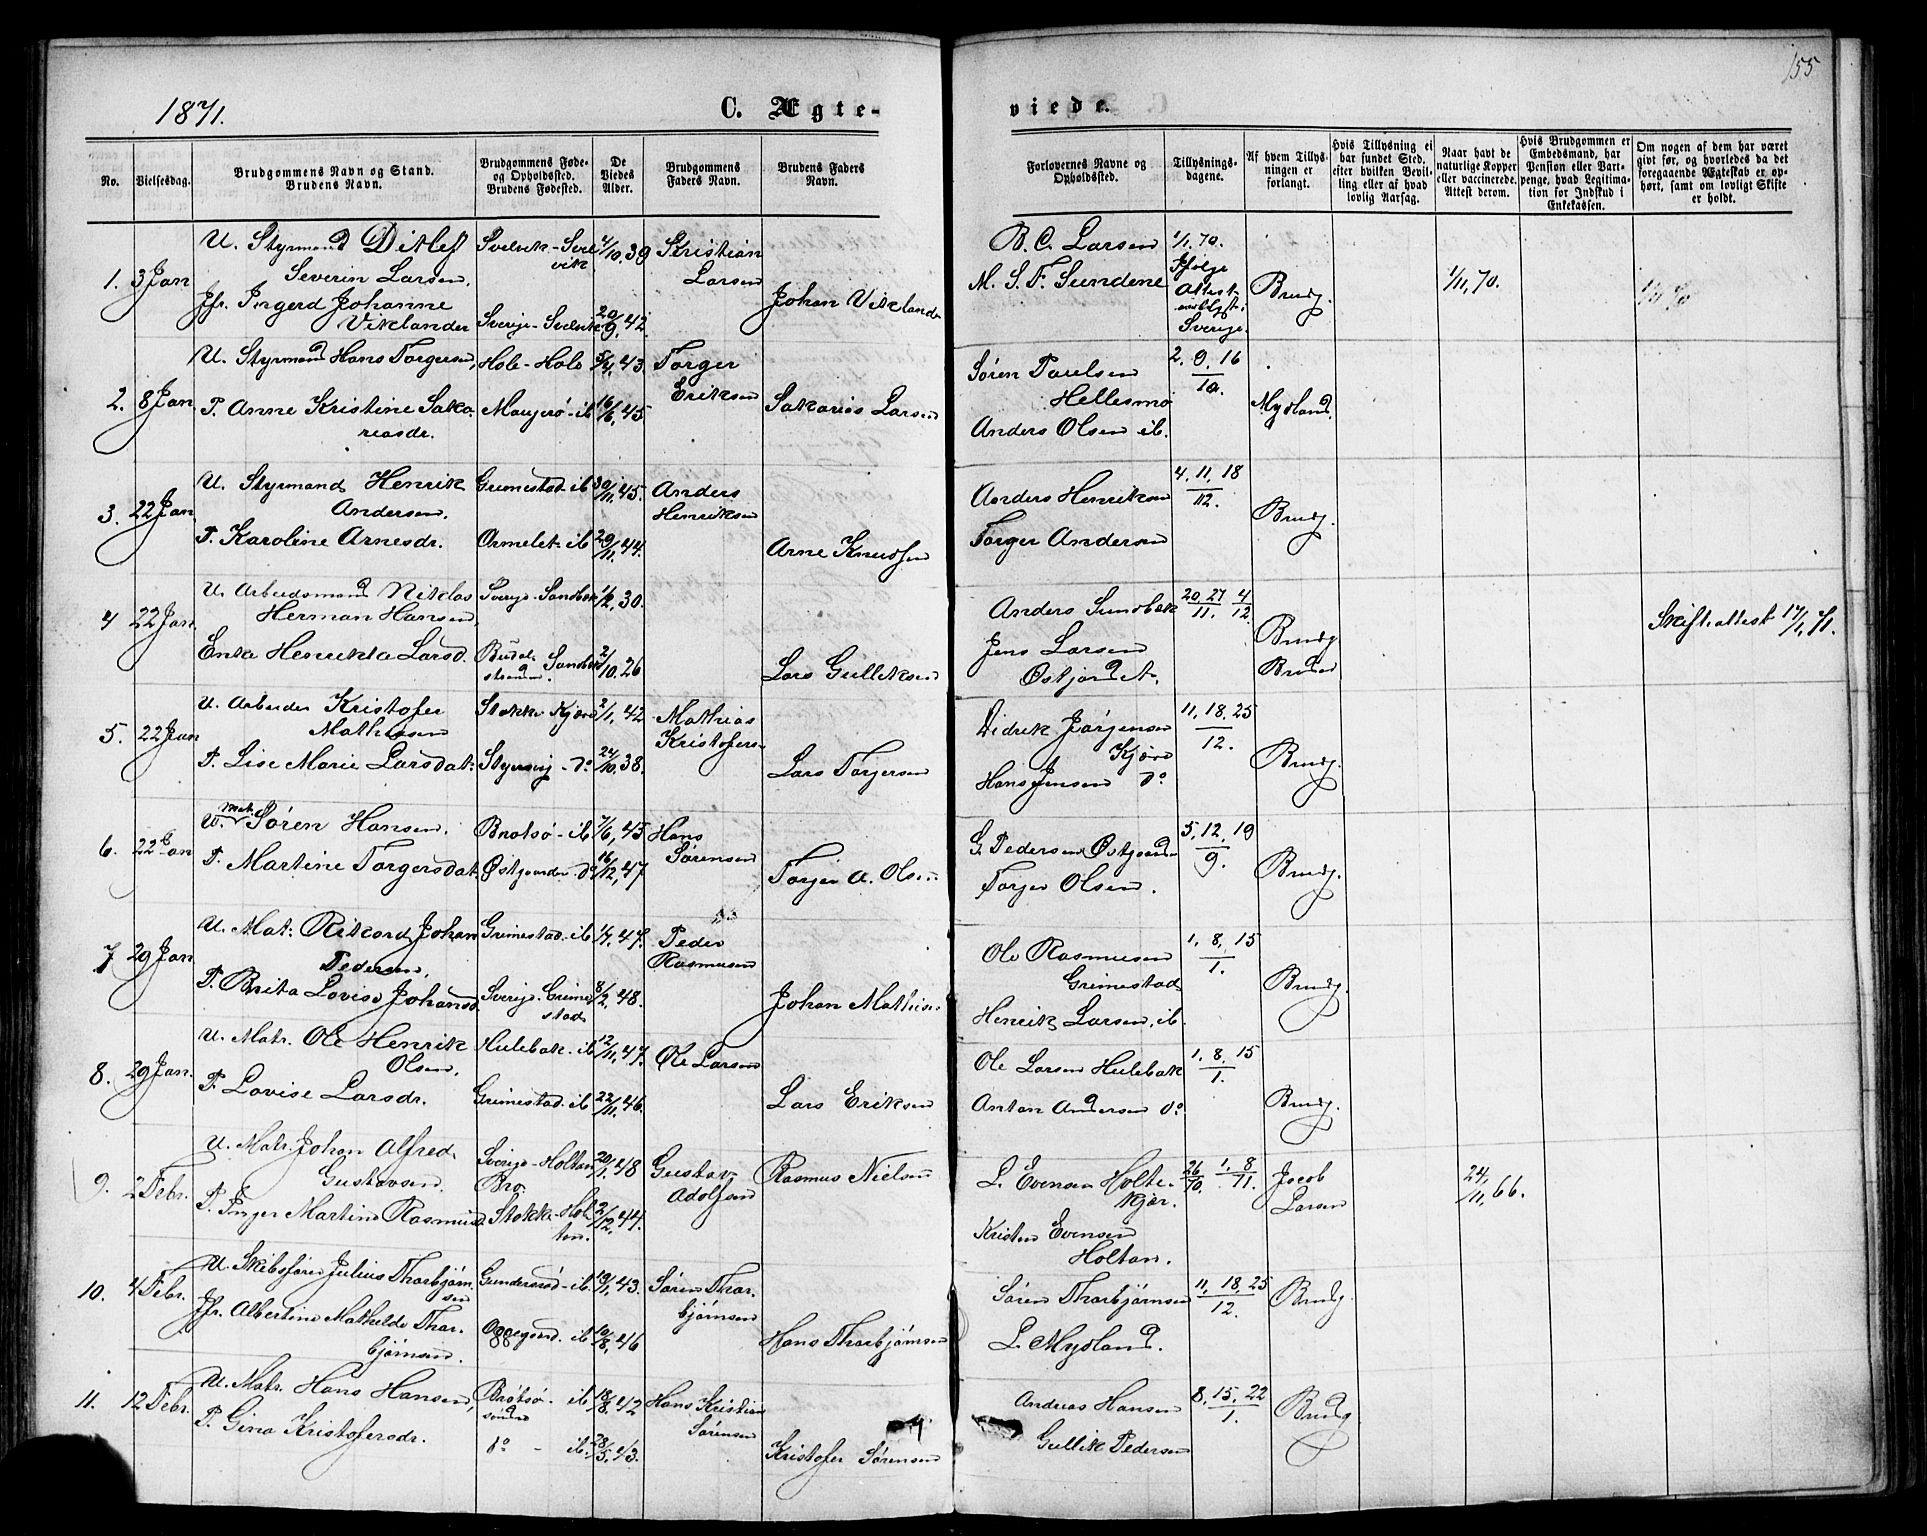 155
1871.
C. Ægte-
viede.
No.
Vielsesdag.
Brudgommens Navn og Stand.
Brudens Navn.
Brudgommens Føde-
og Opholdssted.
Brudens Fødested.
De
Viedes
Alder.
Brudgommens
Faders Navn.
Brudens Faders
Navn.
Forlovernes Navne og
Opholdssted.
Tillysnings-
dagene.
Af hvem Tillys-
ningen er
forlangt.
Hvis Tillysning ei
har fundet Sted,
efter hvilken Bevil-
ling eller af hvad
lovlig Aarsag.
Naar havt de
naturlige Kopper
eller vaccinerede.
Attest derom.
Hvis Brudgommen er
Embedsmand, har
Pension eller Vart-
penge, hvad Legitima-
tion for Indskud i
Enkekassen.
Om nogen af dem har været
givt før, og hvorledes da det
foregaaende Ægteskab er op-
hørt, samt om lovligt Skifte
er holdt.
1. 3 Jan
U. Styrmand Ditlef
Severin Larsen.
Jfr. Ingerd Johanne
Viklander
Svelvik - Svel
vik
Sverije - Svelvik
4/10. 39
20/9. 42.
Kristian
Larsen
Johan Viklande
B. C. Larsen
M. S. F. Sundene
1/1. 70.
Ifølge
Attest
Sverije.
Brudg.
1/11, 70.
2. 8 Jan
U. Styrmand Hans Torgersen,
P. Anne Kristine Saka-
riasdr.
Hole - Hole
Maugerø - ib
5/4, 43.
16/6, 45
Torger
Eriksen
Sakarias Larsen
Søren Paulsen
Hellesmo
Anders Olsen ib.
2. 9. 16
10.
Mydland.
3. 22 Jan
U. Styrmand Henrik
Andersen.
P. Karoline Arnesdr.
Grimestad - ib
Ormelet - ib
30/11, 45.
29/11, 44.
Anders
Henriksen
Arne Knudsen
Anders Henriksen
Torger Andersen
4. 11, 18
12.
Brudg.
4 22 Jan.
U. Arbeidsmand Niklas
Herman Hansen,
Enke Henrikka Larsd.
Sverije - Sandbæk
1/2, 30.
2/10. 26
Lars Gulliksen
Anders Sundbæk
Jens Larsen
Østjordet.
20, 27 4
11. 12.
Brudg
Bruden
Skifteattest 17/1, 71.
5. 22 Jan
U. Arbeider Kristofer
Mathiasen
P. Lise Marie Larsdat:
Stokke - Kjøre
- do
2/1, 42
24/10, 38.
Mathias
Kristofers-
Lars Torgersen
Didrik Jørgensen
Kjøre
Hans Jensen do
11, 18, 25
12.
Brudg.
6. 22 Jan
U. Mat. Søren Hansen.
P. Martine Torgersdat.
Brøtsø - ib
Østgaarden - do
7/6, 45
16/12, 47
Hans
Sørensen
Torjer A. Olsen
G. Pedersen Østgaarden
Torjer Olsen.
5, 12, 19
9.
Brudg.
7 29 Jan
U. Mat: Rikard Johan
Pedersen,
P. Brita Lovise Johansd.
Grimestad - ib
Sverije - Grime
stad
1/7, 47.
8/2, 48.
Peder
Rasmusen
Johan Mathies.
Ole Rasmusen
Grimestad
Henrik Larsen, ib.
1, 8, 15
1.
Brudg.
8. 29 Jan.
U. Matr. Ole Henrik
Olsen.
P. Lovise Larsdr.
Hulebak - ib
Grimestad - ib
12/11, 47.
22/11, 46.
Ole Larsen
Lars Eriksen
Ole Larsen Hulebak
Anton Andersen do
1. 8, 15
1.
Brudg.
9. 2 Febr.
U. Matr. Johan Alfred
Gustavsen.
P. Inger Martine Rasmusd.
Sverije - Holtan
Bro.
Stokke - Hol
tan.
20/1, 48
2/12, 44.
Gustav
Adolfsen
Rasmus Nielsen
L. Evensen Holte-
kjær.
Kristen Evensen
Holtan.
26/70. 1, 8/71.
Jacob
Larsen
24/11, 66.
10. 4 Febr.
U. Skibsfører Julius Thorbjørn-
sen
Jfr. Albertine Mathilde Thor-
bjørnsen.
Gundersrød - ib.
Oppegaard - ib
19/1, 43.
10/8, 46
Søren Thor-
bjørnsen
Hans Thorbjørnsen
Søren Thorbjørnsen
L. Mydland.
11, 18, 25
12.
Brudg.
11. 12 Febr.
U. Matr. Hans Hansen,
P. Gina Kristofersdr.
Brøtsø - ib
søndre
do - ib.
18/8, 42
28/5, 43.
Hans Kristian
Sørensen
Kristofer Sørensen
Andreas Hansen
Gullik Pedersen
8, 15, 22
1.
Brudg